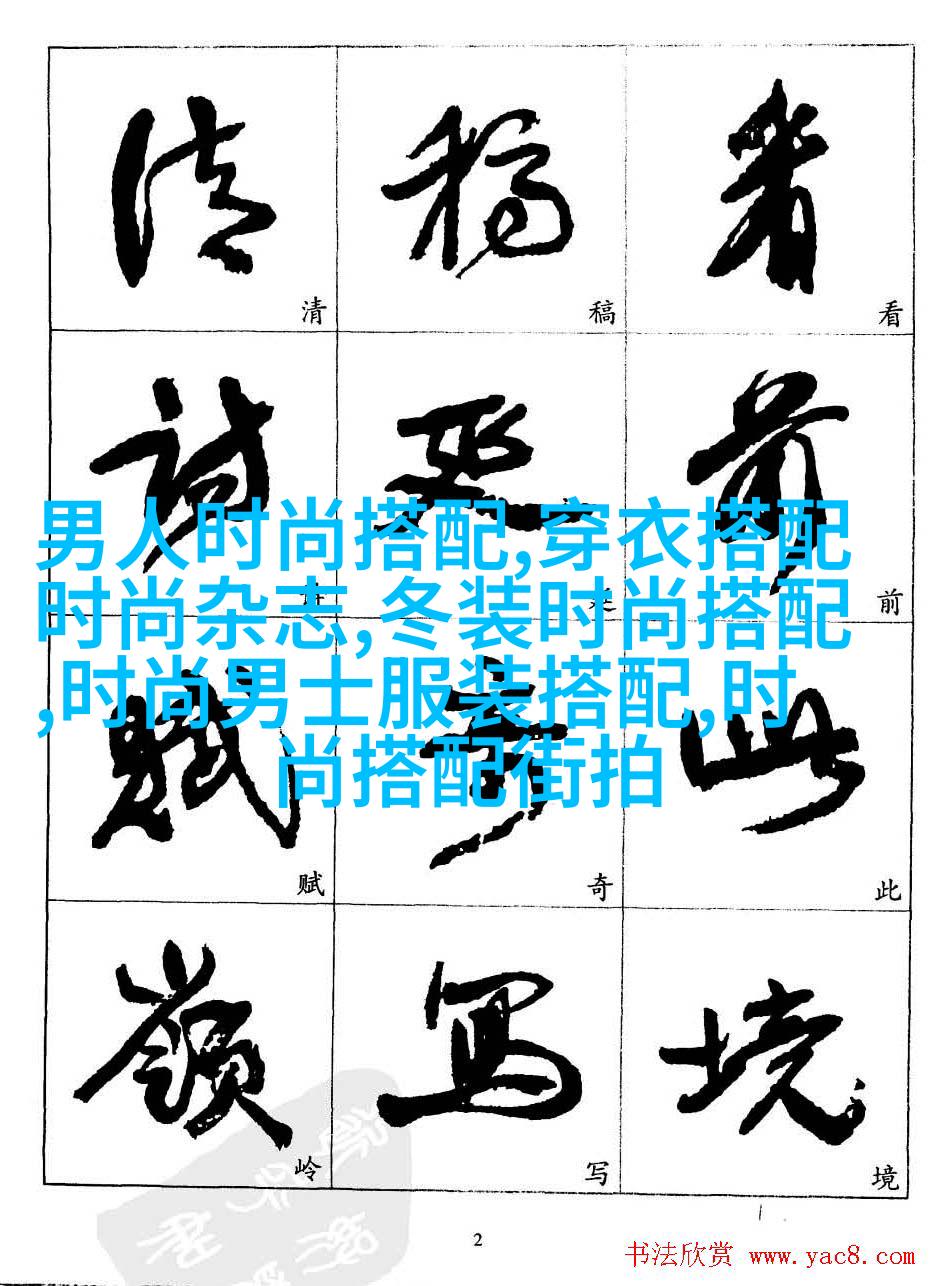 清 稿 看
诗 是 前
男人时尚搭配,穿衣搭配
时尚杂志,冬装时尚搭配
,时尚男士服装搭配,时
尚搭配街拍
赋 奇 此
岭 写 境
2
书法欣赏 www.yac8.com